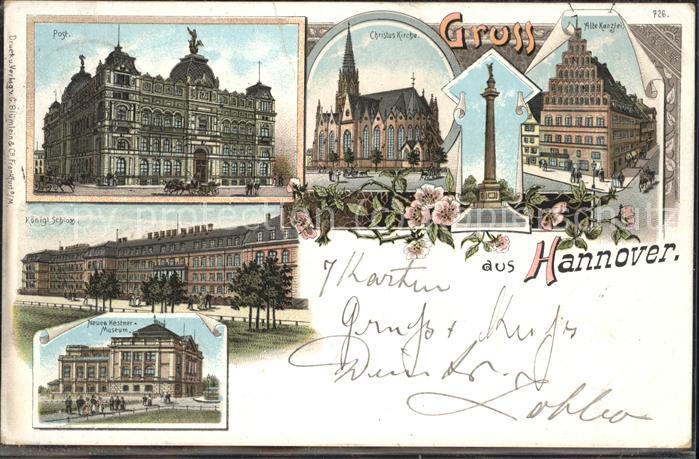 Post.
Christus Kirche.
Gruss
726.
Alte Kanzlei.
Druck u. Verlag v. G. Blümlein & Co. Frankfurt a/M.
Königl. Schloss.
aus Hannover.
Neues Kestner-
Museum.
7 Karten
Gruss + Kuss
Dein